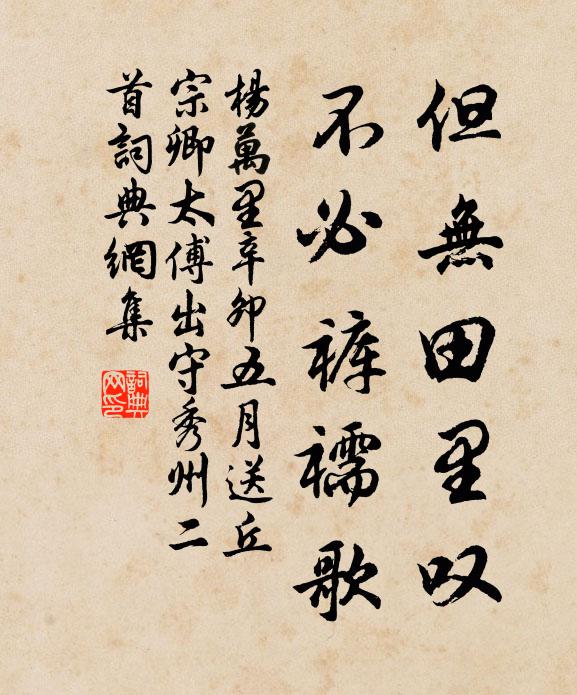 但無田里叹
不必裤襦歌
楊萬里辛卯五月送丘
宗卿太傅出守秀州二
首詞典網集
詞典
网印